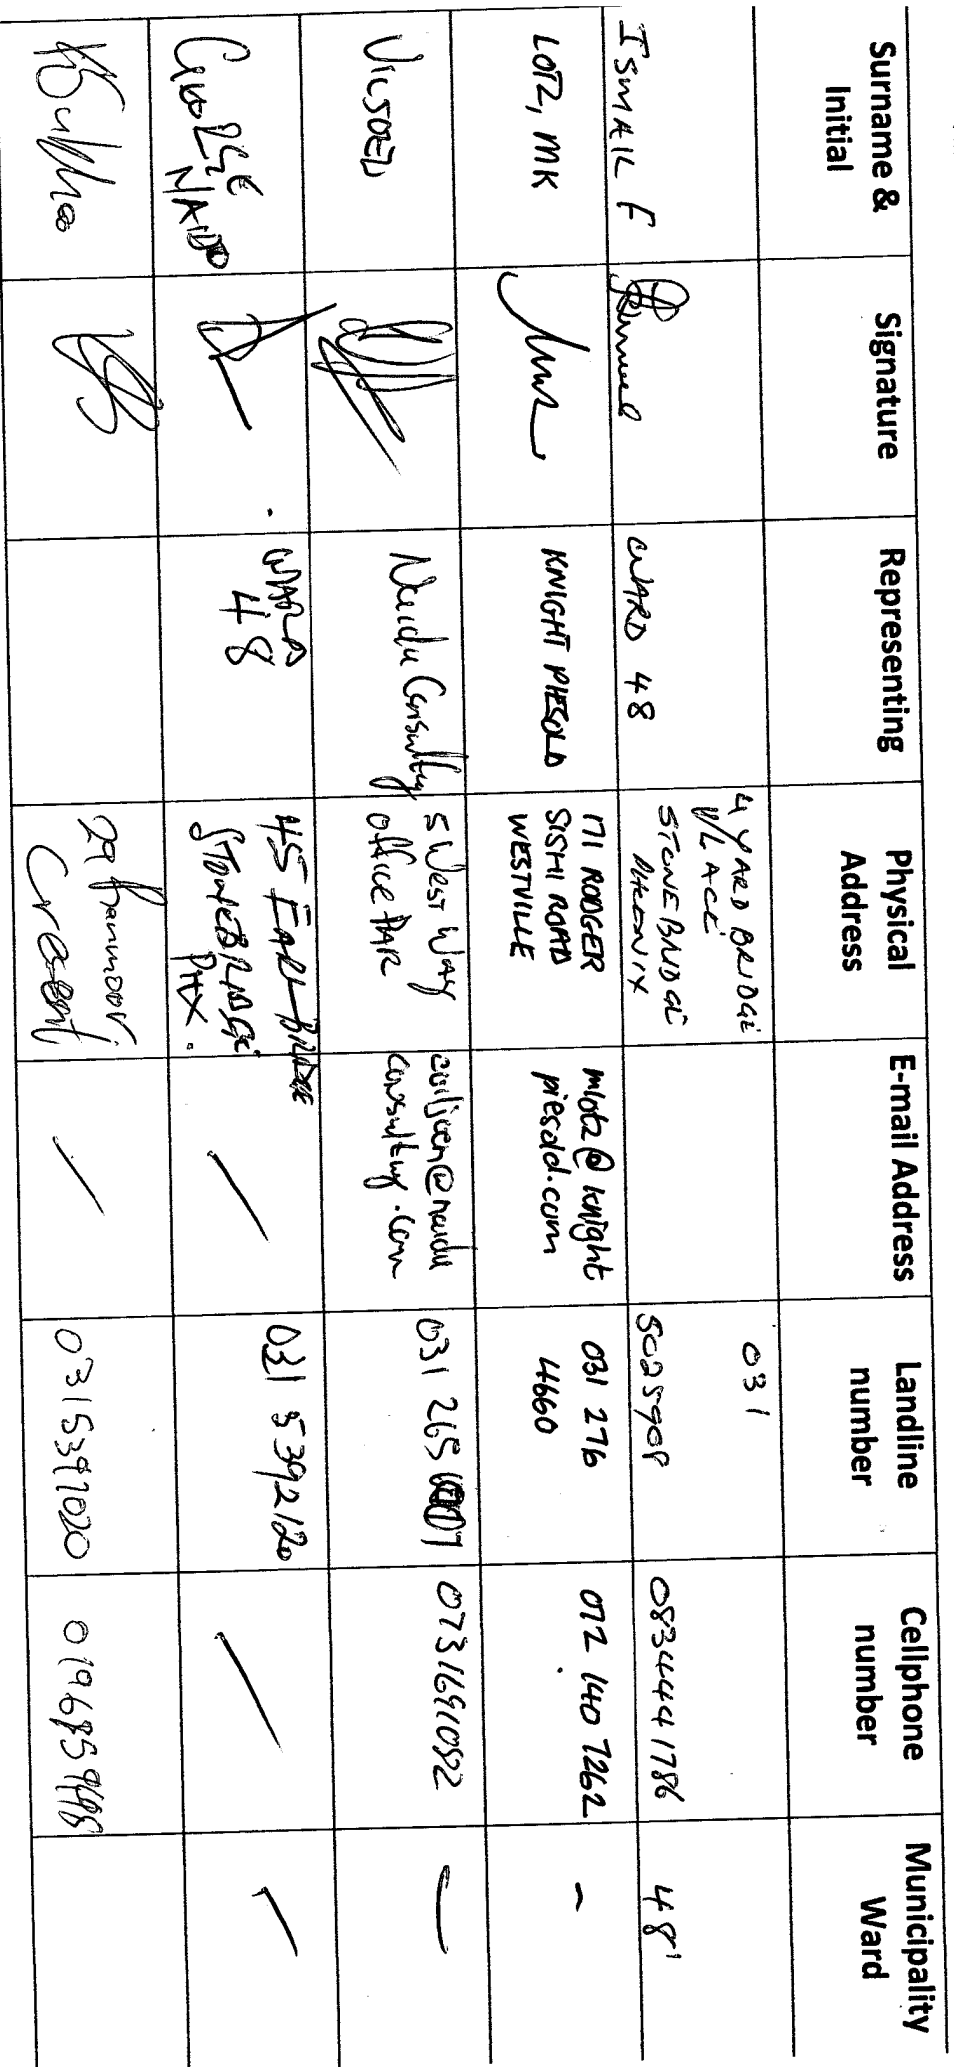 Surname &
Initial
Signature
Representing
Physical
Address
E-mail Address
Landline
number
Cellphone
number
Municipality
Ward
ISMAIL F
WARD 48
4 YARDBRIDGE
PLACE
STONEBRIDGE
PHEONIX
031
5025908
0834441786
48
LOTZ, MK
KNIGHT PIESOLD
171 RODGER
SISHI ROAD
WESTVILLE
mlotz@knight
piesold.com
031 276
4660
072 140 7262
-
Naidu Consulting
5 West Way
Office PAR
consulting.com
031 265
0731691082
—
GEORGE
NAIDO
WARD
48
45
STONEBRIDGE
PHX.
031 5392120
29
Crescent
0315397020